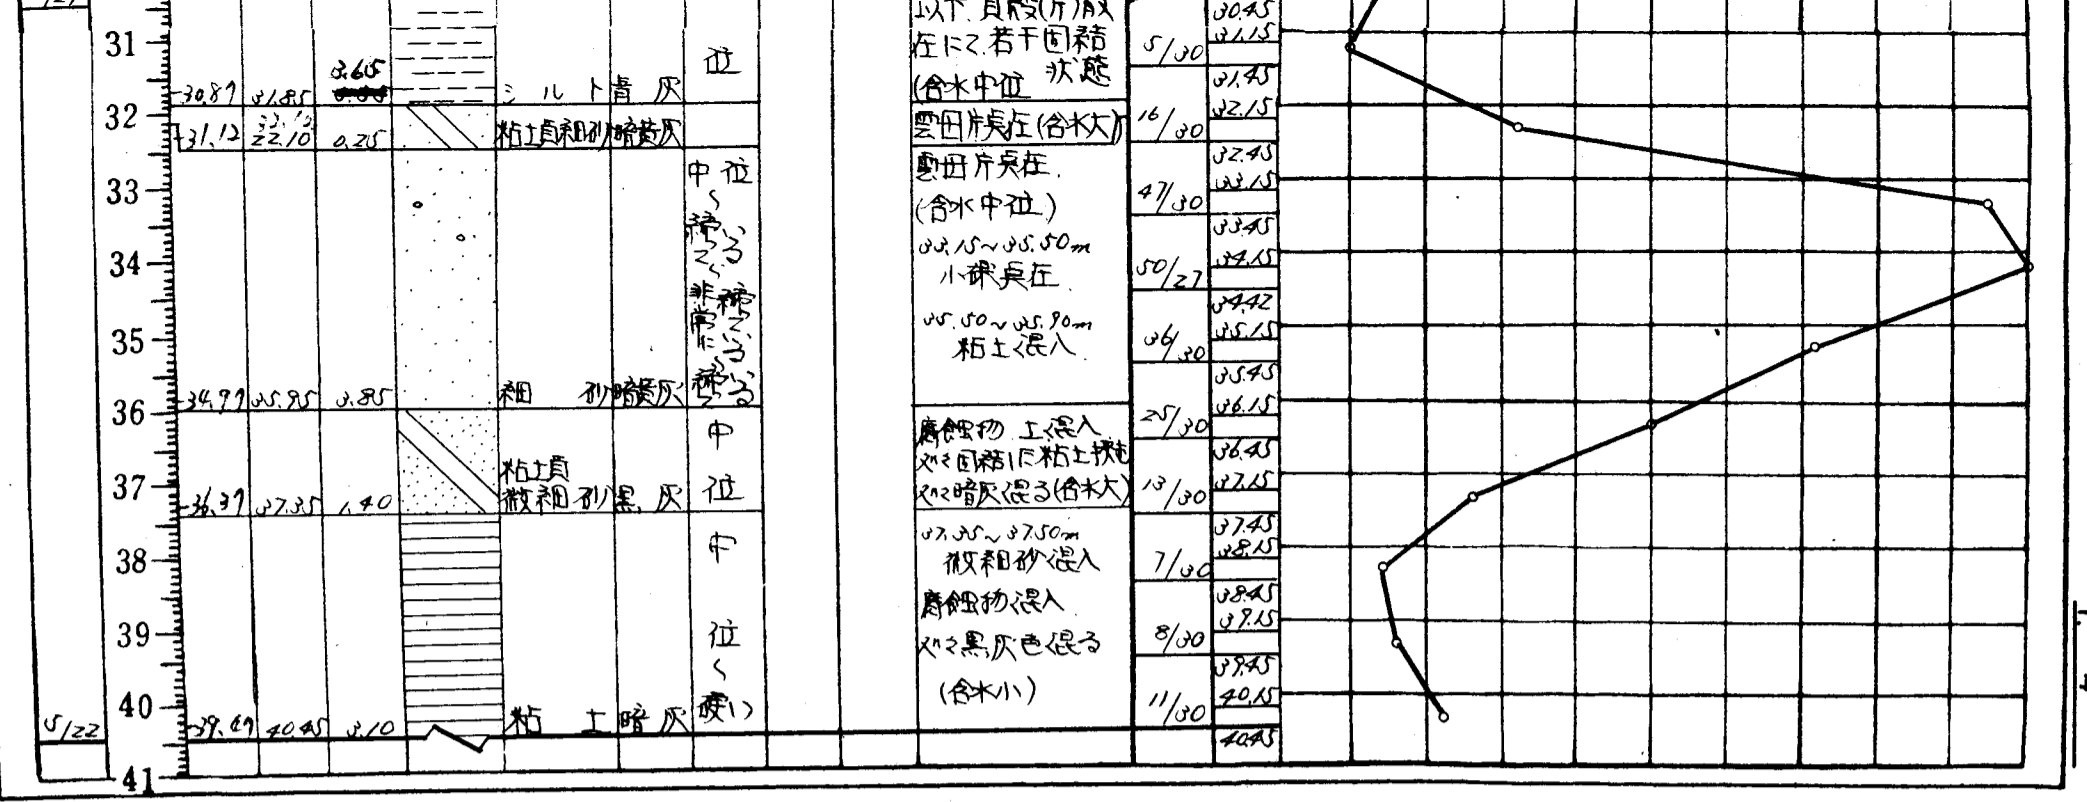 31
32
33
34
35
36
37
38
39
40
41
5/22
31.85
3.65
シルト 青灰
位
-31.12
0.25
粘土質細砂 暗黄灰
35.95
3.85
細砂 暗黄灰
中位
〜
締っている
〜
非常に締っている
〜
締っている
37.35
1.40
粘土質
微細砂 黒灰
中
位
40.45
3.10
粘土 暗灰
中
位
〜
硬い
在にて若干固結
状態
(含水中位
雲母片点在(含水大)
雲母片点在
(含水中位)
33.15~35.50m
小礫点在
35.50~35.90m
粘土混入
腐蝕物 土混入
37.35~37.50m
微細砂混入
腐蝕物混入
所々黒灰色混る
(含水小)
5/30
16/30
47/30
50/27
36/30
25/30
13/30
7/30
8/30
11/30
30.45
31.15
31.45
32.15
32.45
33.15
33.45
34.15
34.42
35.15
35.45
36.15
36.45
37.15
37.45
38.15
38.45
39.15
39.45
40.15
40.45